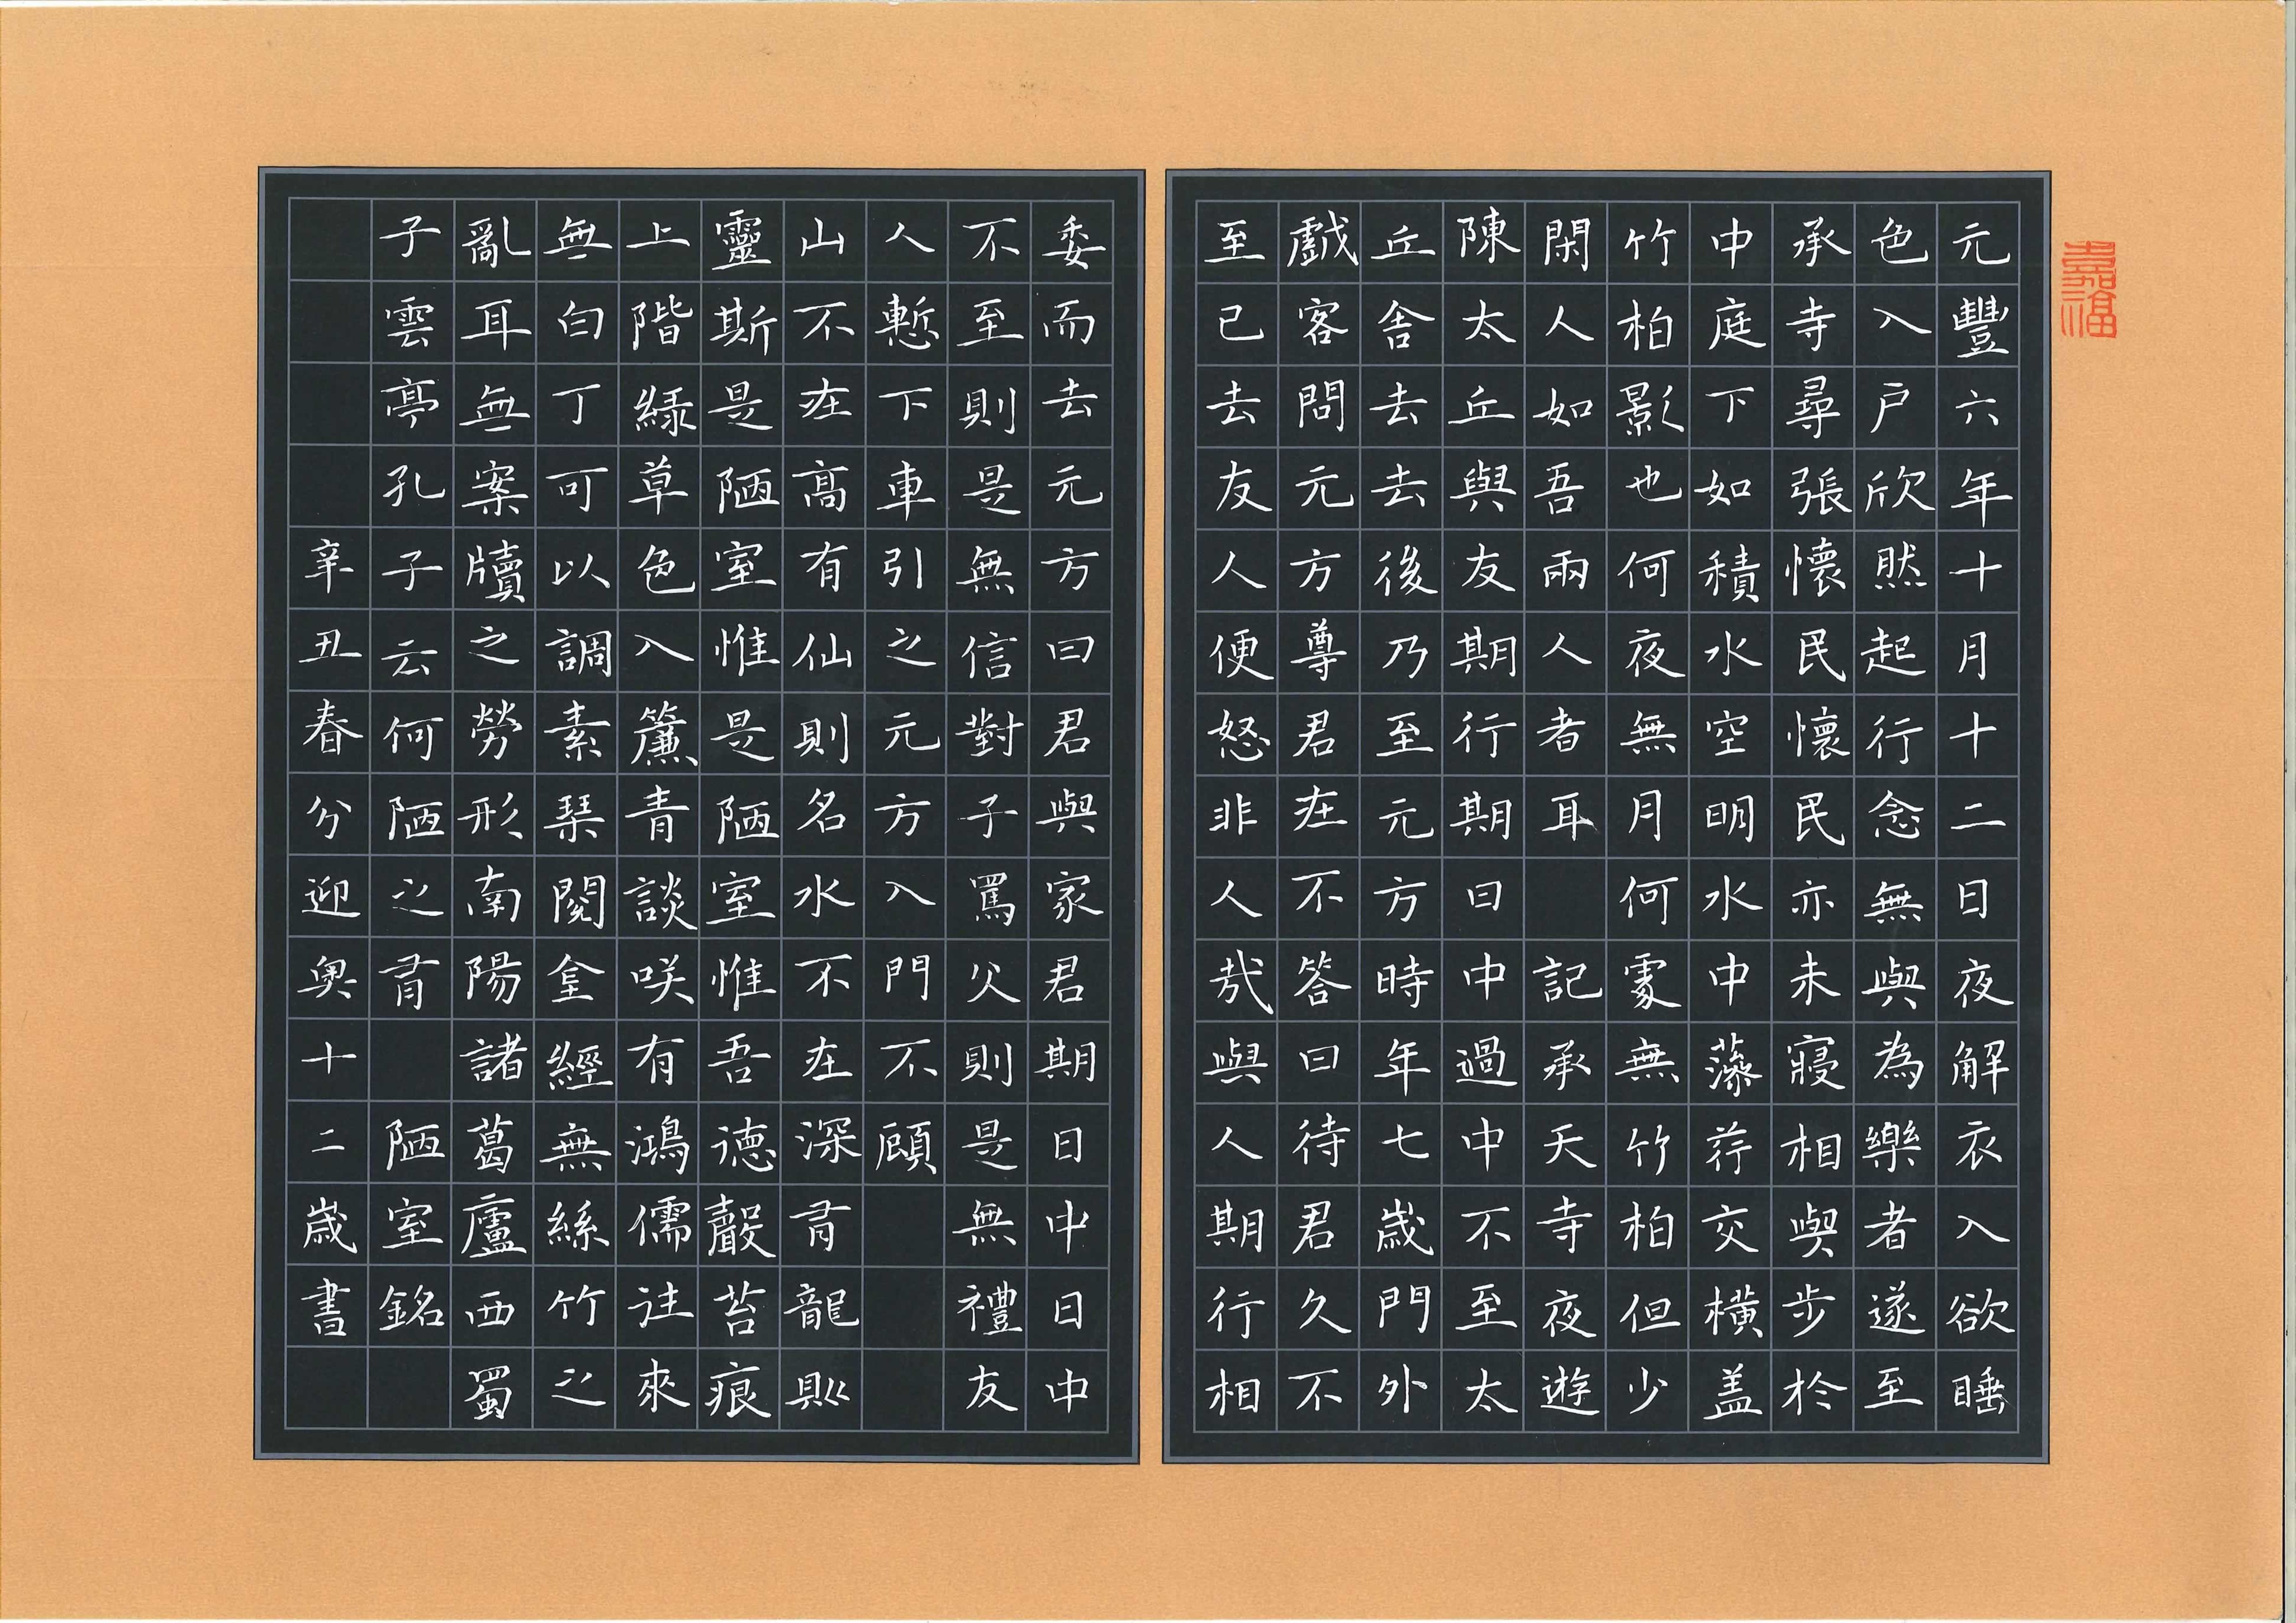 元豐六年十月十二日夜解衣入欲睡
色入户欣然起行念無與為樂者遂至
承寺尋張懷民懷民亦未寢相與步於
中庭下如積水空明水中藻荇交橫盖
竹柏影也何夜無月何處無竹柏但少
閑人如吾兩人者耳 記承天寺夜遊
陳太丘與友期行期日中過中不至太
丘舍去去後乃至元方時年七歲門外
戲客問元方尊君在不答曰待君久不
至已去友人便怒非人哉與人期行相
委而去元方曰君與家君期日中日中
不至則是無信對子罵父則是無禮友
人慙下車引之元方入門不顧
山不在高有仙則名水不在深有龍則
靈斯是陋室惟是陋室惟吾德馨苔痕
上階緑草色入簾青談咲有鴻儒往來
無白丁可以調素琴閱金經無絲竹之
亂耳無案牘之勞形南陽諸葛廬西蜀
子雲亭孔子云何陋之有 陋室銘
辛丑春分迎奥十二歲書